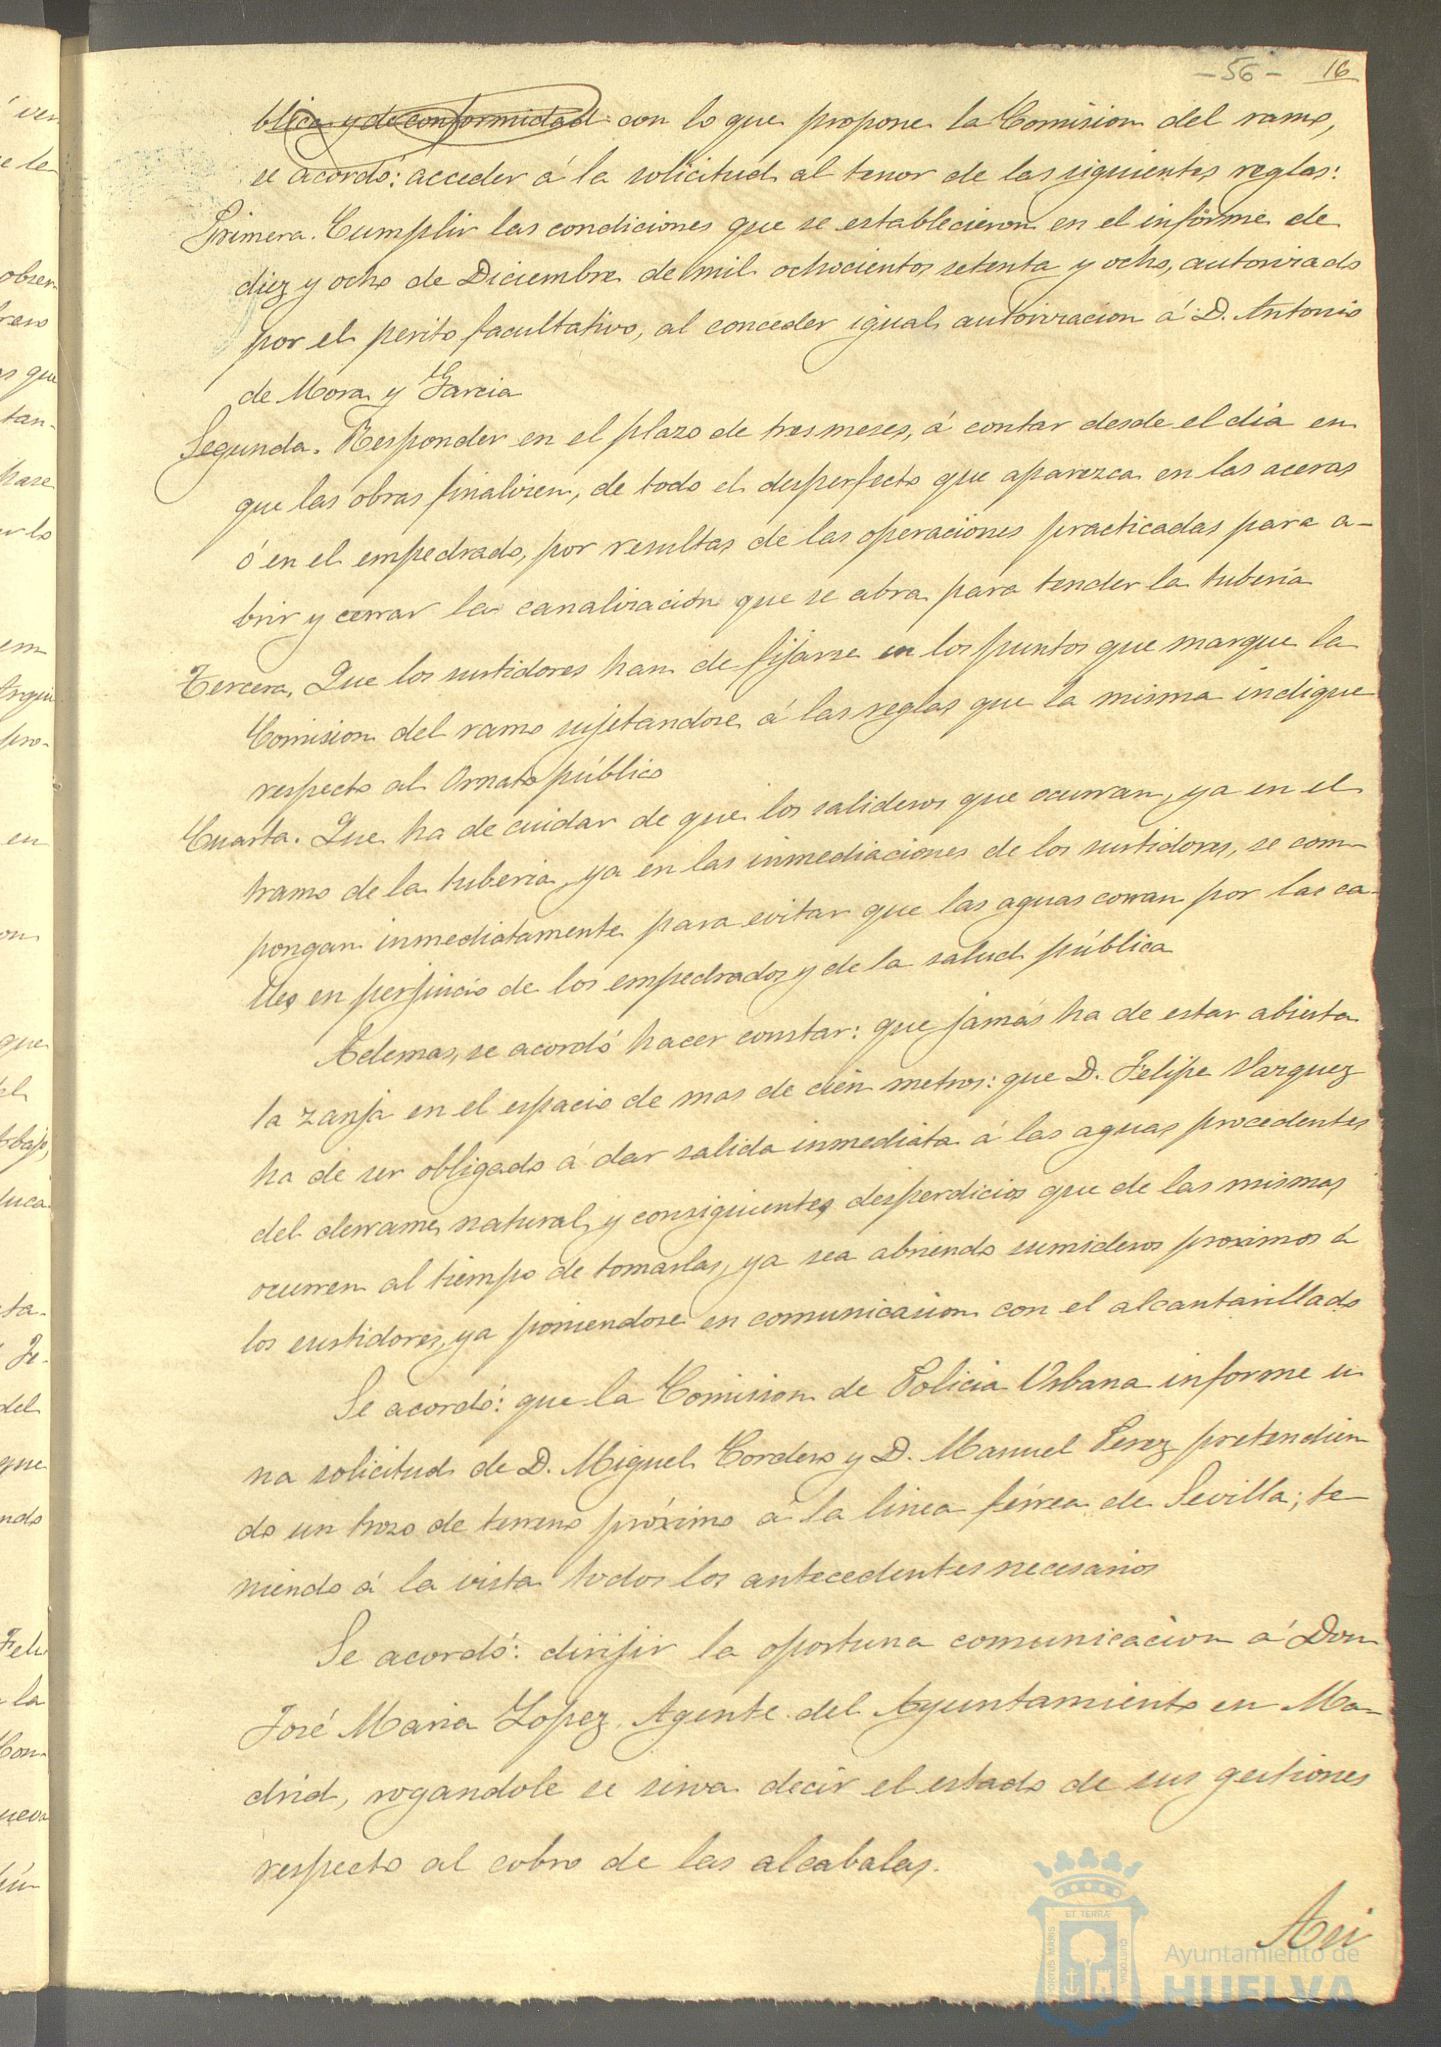 -56- 16
blica y de conformidad con lo que propone la Comision del ramo,
se acordó: acceder á la solicitud al tenor de las siguientes reglas:
Primera. Cumplir las condiciones que se establecieron en el informe de
diez y ocho de Diciembre de mil ochocientos setenta y ocho, autorizado
por el perito facultativo, al conceder igual autorizacion á D. Antonio
de Mora y Garcia
Segunda. Responder en el plazo de tres meses, á contar desde el dia en
que las obras finalizen, de todo el desperfecto que aparezca en las aceras
ó en el empedrado, por resultas de las operaciones practicadas para a-
brir y cerrar la canalización que se abra para tender la tuberia
Tercera. Que los surtidores han de fijarse en los puntos que marque la
Comision del ramo sujetandose á las reglas que la misma indique
respecto al Ornato público
Cuarta. Que ha de cuidar de que los salideros que ocurran, ya en el
tramo de la tuberia, ya en las inmediaciones de los surtidores, se com-
pongan inmediatamente para evitar que las aguas corran por las ca-
lles en perjuicio de los empedrados y de la salud pública
Ademas, se acordó hacer constar: que jamás ha de estar abierta
la zanja en el espacio de mas de cien metros: que D. Felipe Vazquez
ha de ser obligado á dar salida inmediata á las aguas procedentes
del derrame natural y consiguientes desperdicios que de las mismas
ocurren al tiempo de tomarlas, ya sea abriendo sumideros proximos á
los surtidores, ya poniendose en comunicacion con el alcantarillado
Se acordó: que la Comision de Policia Urbana informe u
na solicitud de D. Miguel Cordero y D. Manuel Perez pretendien
do un trozo de terreno próximo á la linea férrea de Sevilla; te-
niendo á la vista todos los antecedentes necesarios
Se acordó: dirijir la oportuna comunicacion á Don
José Maria Lopez, Agente del Ayuntamiento en Ma-
drid, rogandole se sirva decir el estado de sus gestiones
respecto al cobro de las alcabalas.
Asi
PORTUS MARIS ET TERRÆ CUSTODIA
Ayuntamiento de
HUELVA